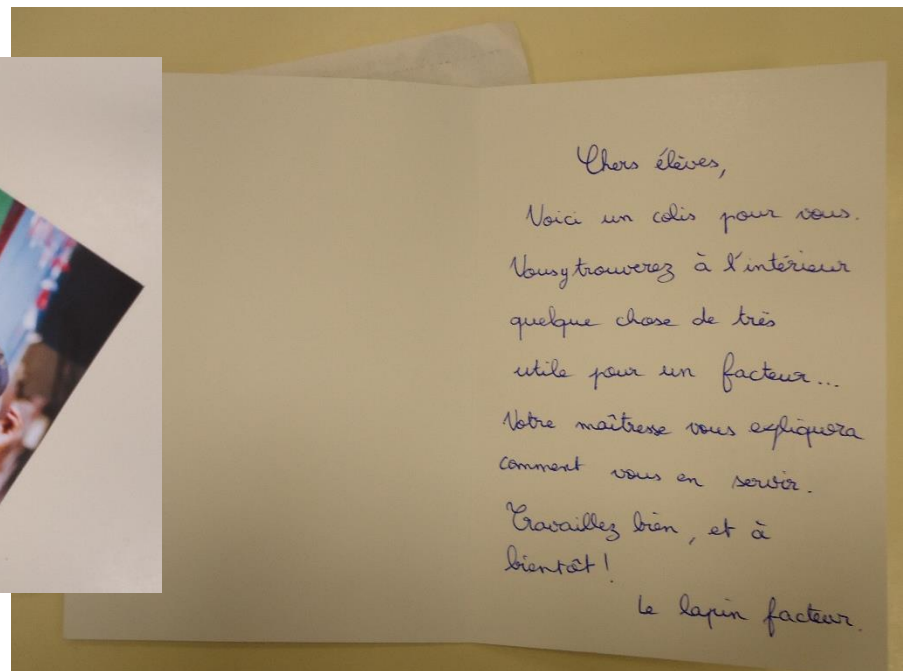 Chers élèves,
Voici un colis pour vous.
Vous y trouverez à l'intérieur
quelque chose de très
utile pour un facteur...
Votre maîtresse vous expliquera
comment vous en servir.
Travaillez bien, et à
bientôt !
Le lapin facteur.